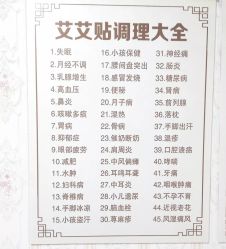 艾艾贴调理大全
1.失眠
2.月经不调
3.乳腺增生
4.高血压
5.鼻炎
6.咳嗽多痰
7.胃病
8.抑郁症
9.眼部疲劳
10.减肥
11.水肿
12.妇科病
13.脊椎病
14.手脚冰凉
15.小孩盗汗
16.小孩保健
17.腰间盘突出
18.感冒发烧
19.便秘
20.月子病
21.湿热
22.骨病
23.催奶断奶
24.肩周炎
25.中风偏瘫
26.耳鸣耳聋
27.中耳炎
28.小儿遗尿
29.脑血栓
30.荨麻疹
31.神经痛
32.肠炎
33.糖尿病
34.肾病
35.前列腺
36.落枕
37.手脚出汗
38.湿疹
39.口腔溃疡
40.哮喘
41.牙痛
42.咽喉肿痛
43.不孕不育
44.近视老花
45.风湿痛风